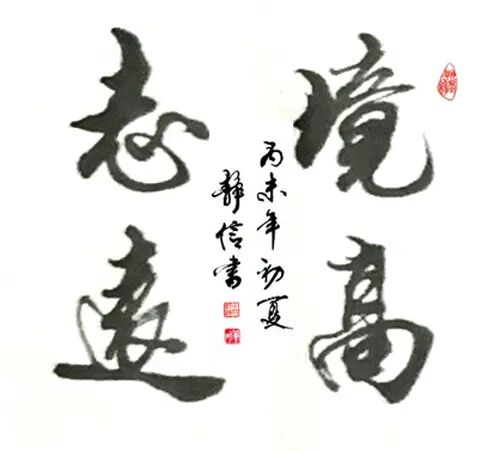 境高
志遠
丙未年初夏
靜信書